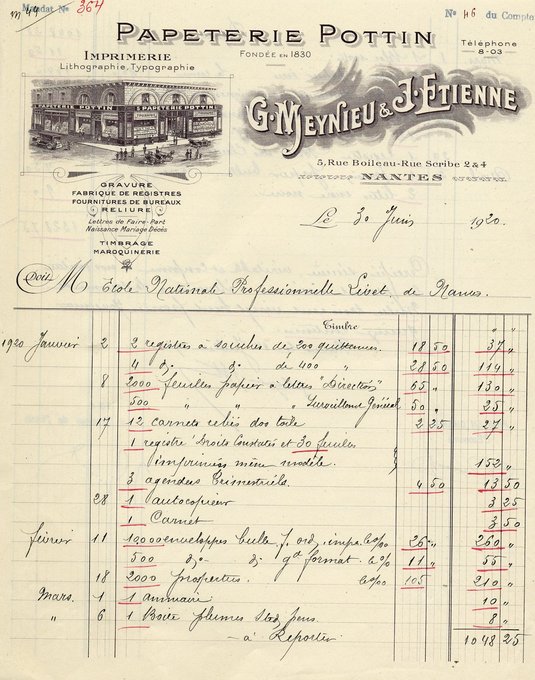 Mandat No 364
No 46 du Compte
PAPETERIE POTTIN
FONDÉE EN 1830
Téléphone
8-03
IMPRIMERIE
Lithographie, Typographie
PAPETERIE POTTIN PAPETERIE POTTIN
G. MEYNIEU & J. ETIENNE
5, Rue Boileau-Rue Scribe 2 & 4
NANTES
GRAVURE
FABRIQUE DE REGISTRES
FOURNITURES DE BUREAUX
RELIURE
Lettres de Faire-Part
Naissance Mariage Décès
TIMBRAGE
MAROQUINERIE
Le 30 Juin 1920.
Doit M Ecole Nationale Professionnelle Livet, de Nantes.
Timbre " "
1920 Janvier 2 2 registres à souches de 200 quittances. 18 50 37 "
4 do do de 400 " 28 50 114 "
8 2000 feuilles papier à lettres "Direction" 65 " 130 "
500 " " " Surveillant Général 50 " 25 "
17 12 carnets reliés dos toile 2 25 27 "
1 registre "Droits Constatés et 30 feuilles
imprimées même modèle. 152 "
3 agendas trimestriels. 4 50 13 50
28 1 autocopieur 3 25
1 Carnet 3 50
février 11 10000 enveloppes bulle f. ord. impr. le 0/00 26 " 260 "
500 do do gd format. le % 11 " 55 "
18 2000 prospectus. le 0/00 105 210 "
Mars. 1 1 annuaire 10 "
" 6 1 Boite plumes 8 "
à Reporter 1048 25